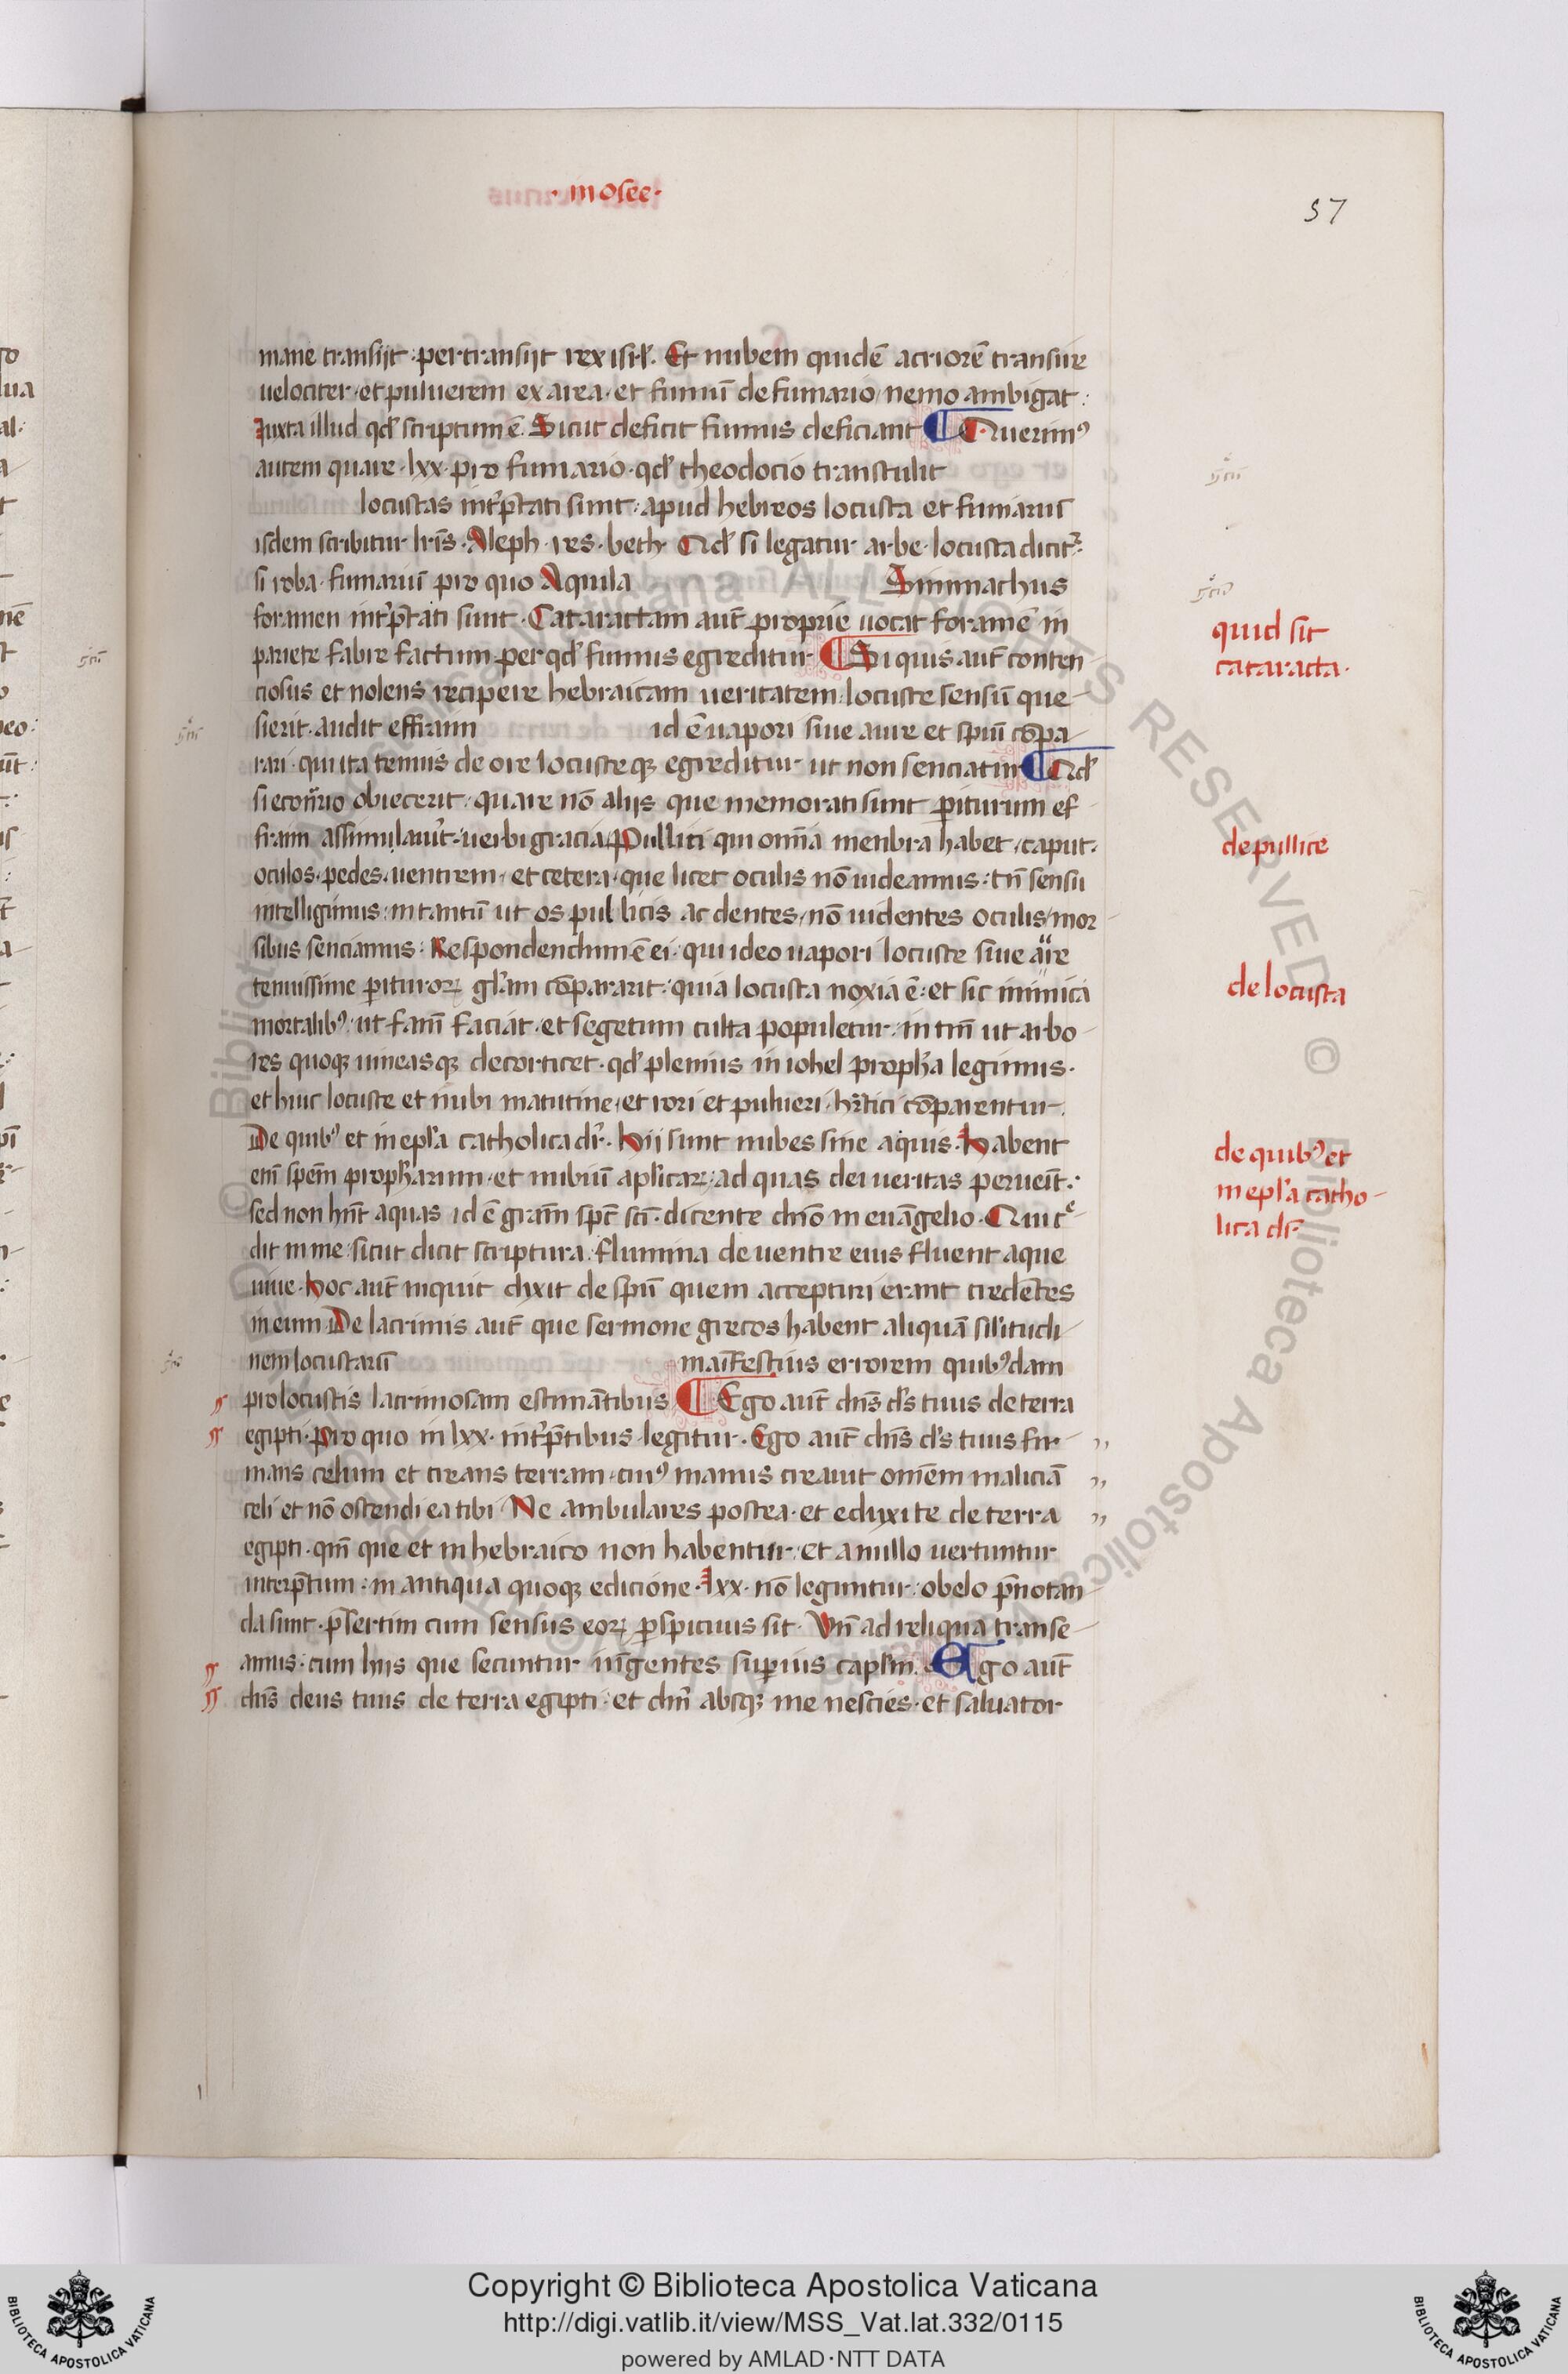 · in osee ·
57
mane transijt · pertransijt rex isrl̄. Et nubem quidē acriorē transire
uelociter · et puluerem ex area · et fumū de fumario / nemo ambigat :
Juxta illud qd̄ scriptum ē. Sicut deficit fumus deficiant Querimꝰ
autem quare · lxx · pro fumario · qd̄ theodocio transtulit
locustas int̾p̄tati sunt : apud hebreos locusta et fumariū
isdem scribitur lr̄is · Aleph · res · beth · Qd̄ si legatur arbe · locusta dicit᷑ :
si roba · fumariū pro quo Aquila Simmachus
foramen int̾p̄tati sunt · Cataractam aut̄ proprie uocat foramē in
pariete fabre factum · per qd̄ fumus egreditur Si quis aut̄ conten
ciosus et nolens recipere hebraicam ueritatem : locuste sensū que-
sierit · audit effraim id ē uapori siue aure et spūi cōpa
rari · qui ita tenuis de ore locusteqꝫ egreditur ut non senciatur Qd̄
si econ̄rio obiecerit · quare nō alijs que memorati sunt ꝑiturum ef-
fraim assimilauīt · uerbi gracia Pullici qui omīa menbra habet / caput ·
oculos · pedes · uentrem · et cetera · que licet oculis nō uideamus : tn̄ sensu
intelligimus : in tantū ut os pullicis ac dentes / nō uidentes oculis / mor-
sibus senciamus : Respondendum ē ei · qui ideo uapori locuste siue aure
tenuissime ꝑiturorꝫ gl̄am cōpararit : quia locusta noxia ē : et sic inimica
mortalibꝰ · ut fam̄ faciat · et segetum culta populetur : in tm̄ ut arbo-
res quoqꝫ uineasqꝫ decorticet · qd̄ plenius in iohel proph̄a legimus ·
et huic locuste et nubi matutine · et rori et pulueri · hr̄etici cōparentur.
De quibꝰ et in epl̄a catholica dr̄ · Hij sunt nubes sine aquis · Habent
eni̅ spem̄ proph̄arum · et nubiū apl̄icarꝫ · ad quas dei ueritas perueīt ·
sed non hn̄t aquas id ē gram̄ spc̄ sc̄i · dicente dn̄o in euāgelio · Qui c̾e-
dit in me · sicut dicit scriptura : flumina de uentre eius fluent aque
uiue · Hoc aut̄ inquit dyxit de spū quem accepturi erant credētes
in eum De lacrimis aut̄ que sermone grecos habent aliquā sil̄itudi-
nem locustarū manifestius errorem quibꝰdam
pro locustis lacrimosam estimātibus Ego aut̄ dn̄s dꝰs tuus de terra
egipti · Pro quo in lxx · int̾p̄tibus legitur · Ego aut̄ dn̄s dꝰs tuus fir-
mans celum et creans terram · cuiꝰ manus creauit omēm maliciā
celi et nō ostendi ea tibi · Ne ambulares postea · et eduxi te de terra
egipti · qm̄ que et in hebraico non habentur · et a nullo uertuntur
interp̄tum : in antiqua quoqꝫ edicione · lxx · nō leguntur : obelo p̄notan-
da sunt · p̄sertim cum sensus eorꝫ ꝑspicuus sit · Vn̄ ad reliqua transe-
amus : cum hijs que secuntur iūgentes suꝑius capl̄m. Ego aut̄
dn̄s deus tuus de terra egipti : et dm̄ absqꝫ me nescies · et saluator
quid sit
cataracta ·
de pullice
de locusta
de quibꝰ et
in epl̄a catho-
lica dr̄
Copyright © Biblioteca Apostolica Vaticana
http://digi.vatlib.it/view/MSS_Vat.lat.332/0115
powered by AMLAD·NTT DATA
BIBLIOTECA APOSTOLICA VATICANA
BIBLIOTECA APOSTOLICA VATICANA